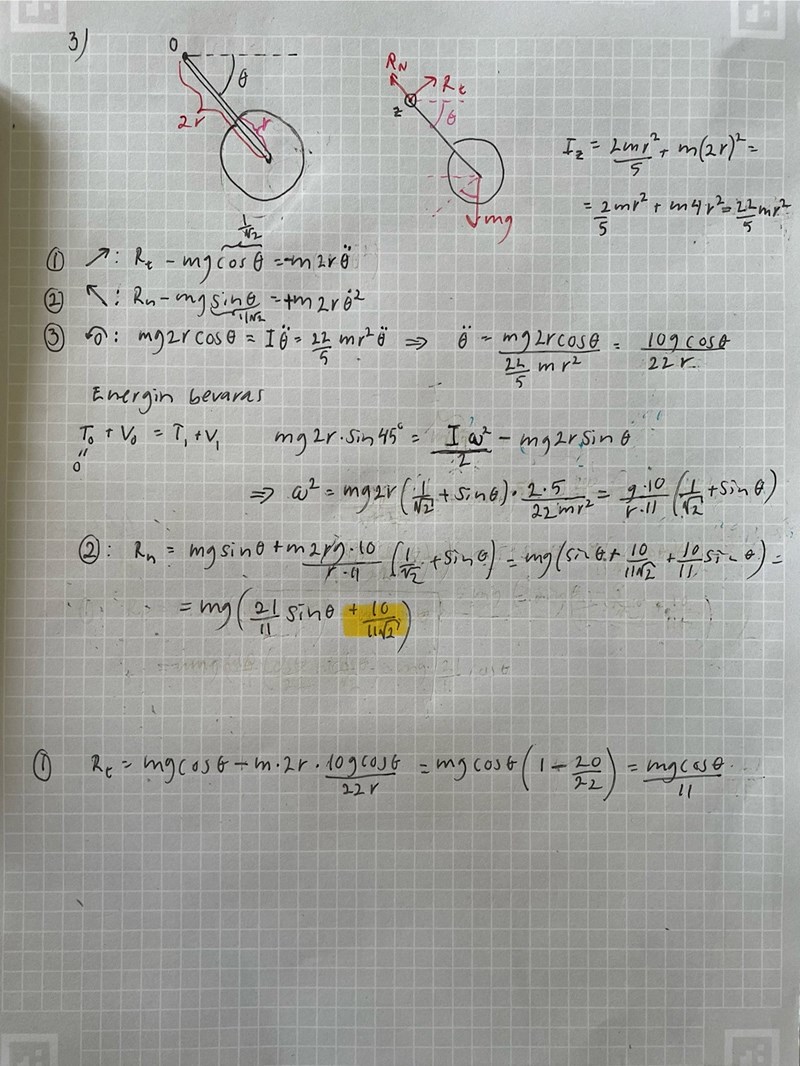 3)
O
θ
2r
r
R_N
R_t
z
θ
mg
I_z = 2mr²/5 + m(2r)² =
= 2/5 mr² + m4r² = 22/5 mr²
1/√2
① ↗: R_t - mg cosθ = -m2rθ̈
② ↖: R_n - mg sinθ = +m2rθ̇²
1/√2
③ ↶: mg2r cosθ = Iθ̈ = 22/5 mr²θ̈ ⇒ θ̈ = mg2rcosθ / (22/5 mr²) = 10g cosθ / 22r
Energin bevaras
T₀ + V₀ = T₁ + V₁ mg2r·sin45° = Iω²/2 - mg2r sinθ
"
0
⇒ ω² = mg2r(1/√2 + sinθ)·2·5/22mr² = g·10/r·11 (1/√2 + sinθ)
②: R_n = mgsinθ + m2rg·10/r·11 (1/√2 + sinθ) = mg(sinθ + 10/11√2 + 10/11 sinθ) =
= mg(21/11 sinθ + 10/11√2)
① R_t = mgcosθ - m·2r·10gcosθ/22r = mgcosθ(1 - 20/22) = mgcosθ/11